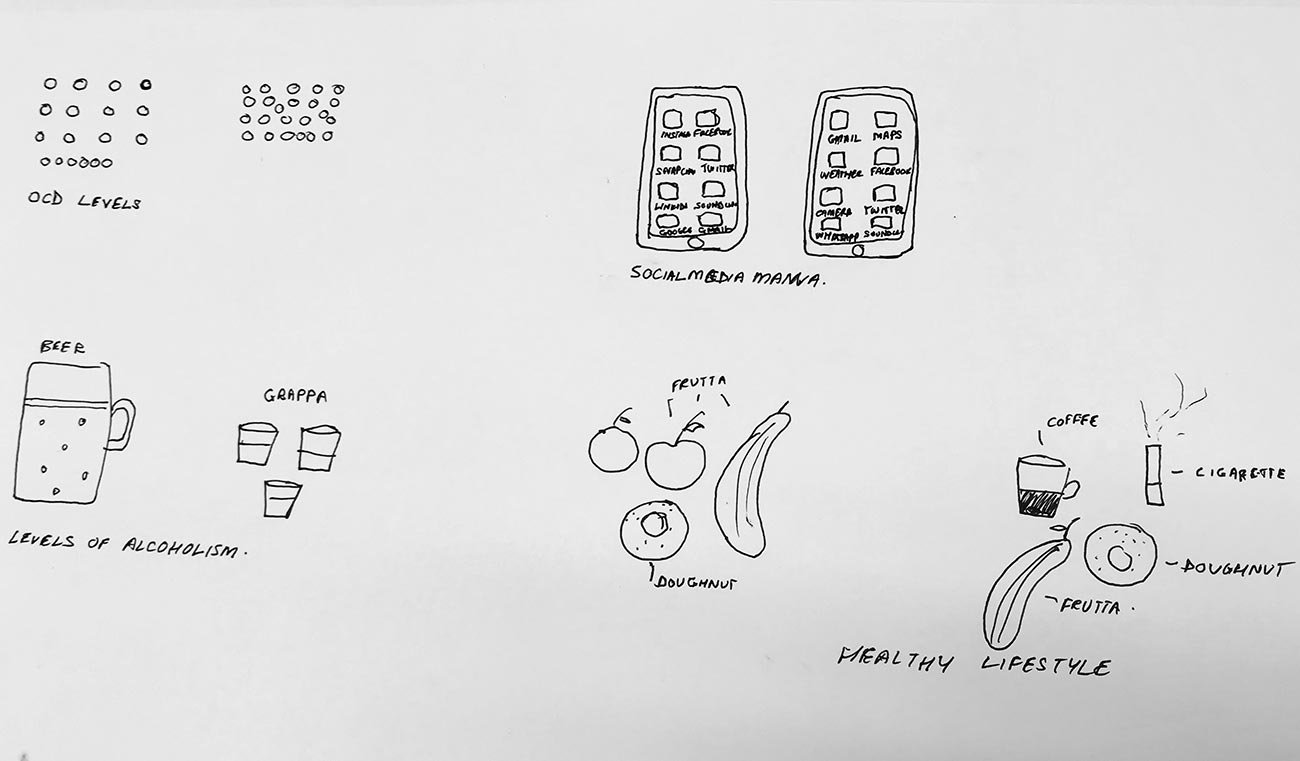 OCD LEVELS
INSTAGA FACEBOOK
SNAPCHA TWITTER
LINKIDI SOUNDCLO
GOOGLE GMAIL
GMAIL MAPS
WEATHER FACEBOOK
CAMERA TWITTER
WHATSAPP SOUNDCLO
SOCIALMEDIA MANIA.
BEER
GRAPPA
LEVELS OF ALCOHOLISM.
FRUTTA
DOUGHNUT
COFFEE
CIGARETTE
DOUGHNUT
FRUTTA.
HEALTHY LIFESTYLE